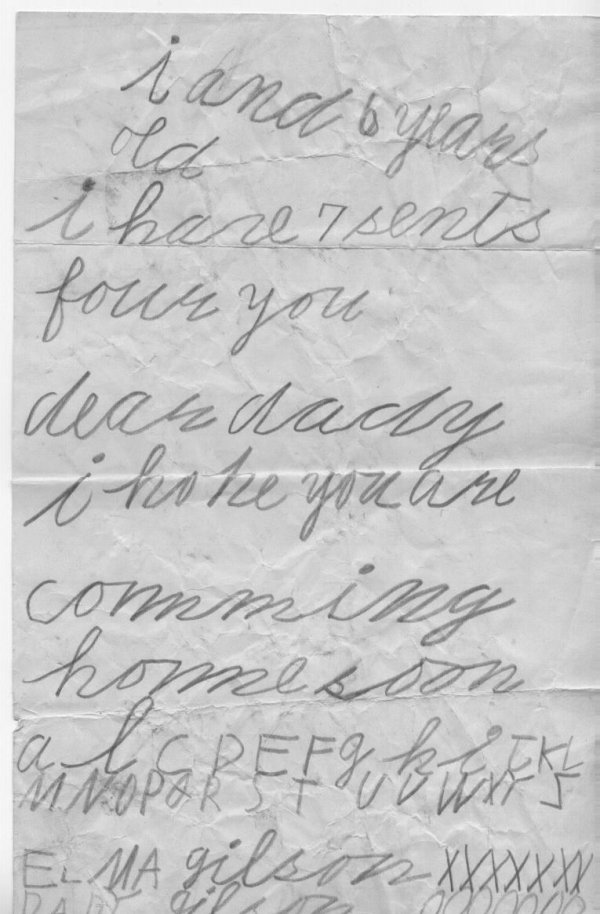 i and 6 years
old
i have 7 sents
four you
dear dady
i hope you are
comming
home soon
a b C D E F g h i J K L
M N O P Q R S T U V W X Y J
ELMA gilson XXXXXXX
gilson OOOOOOO